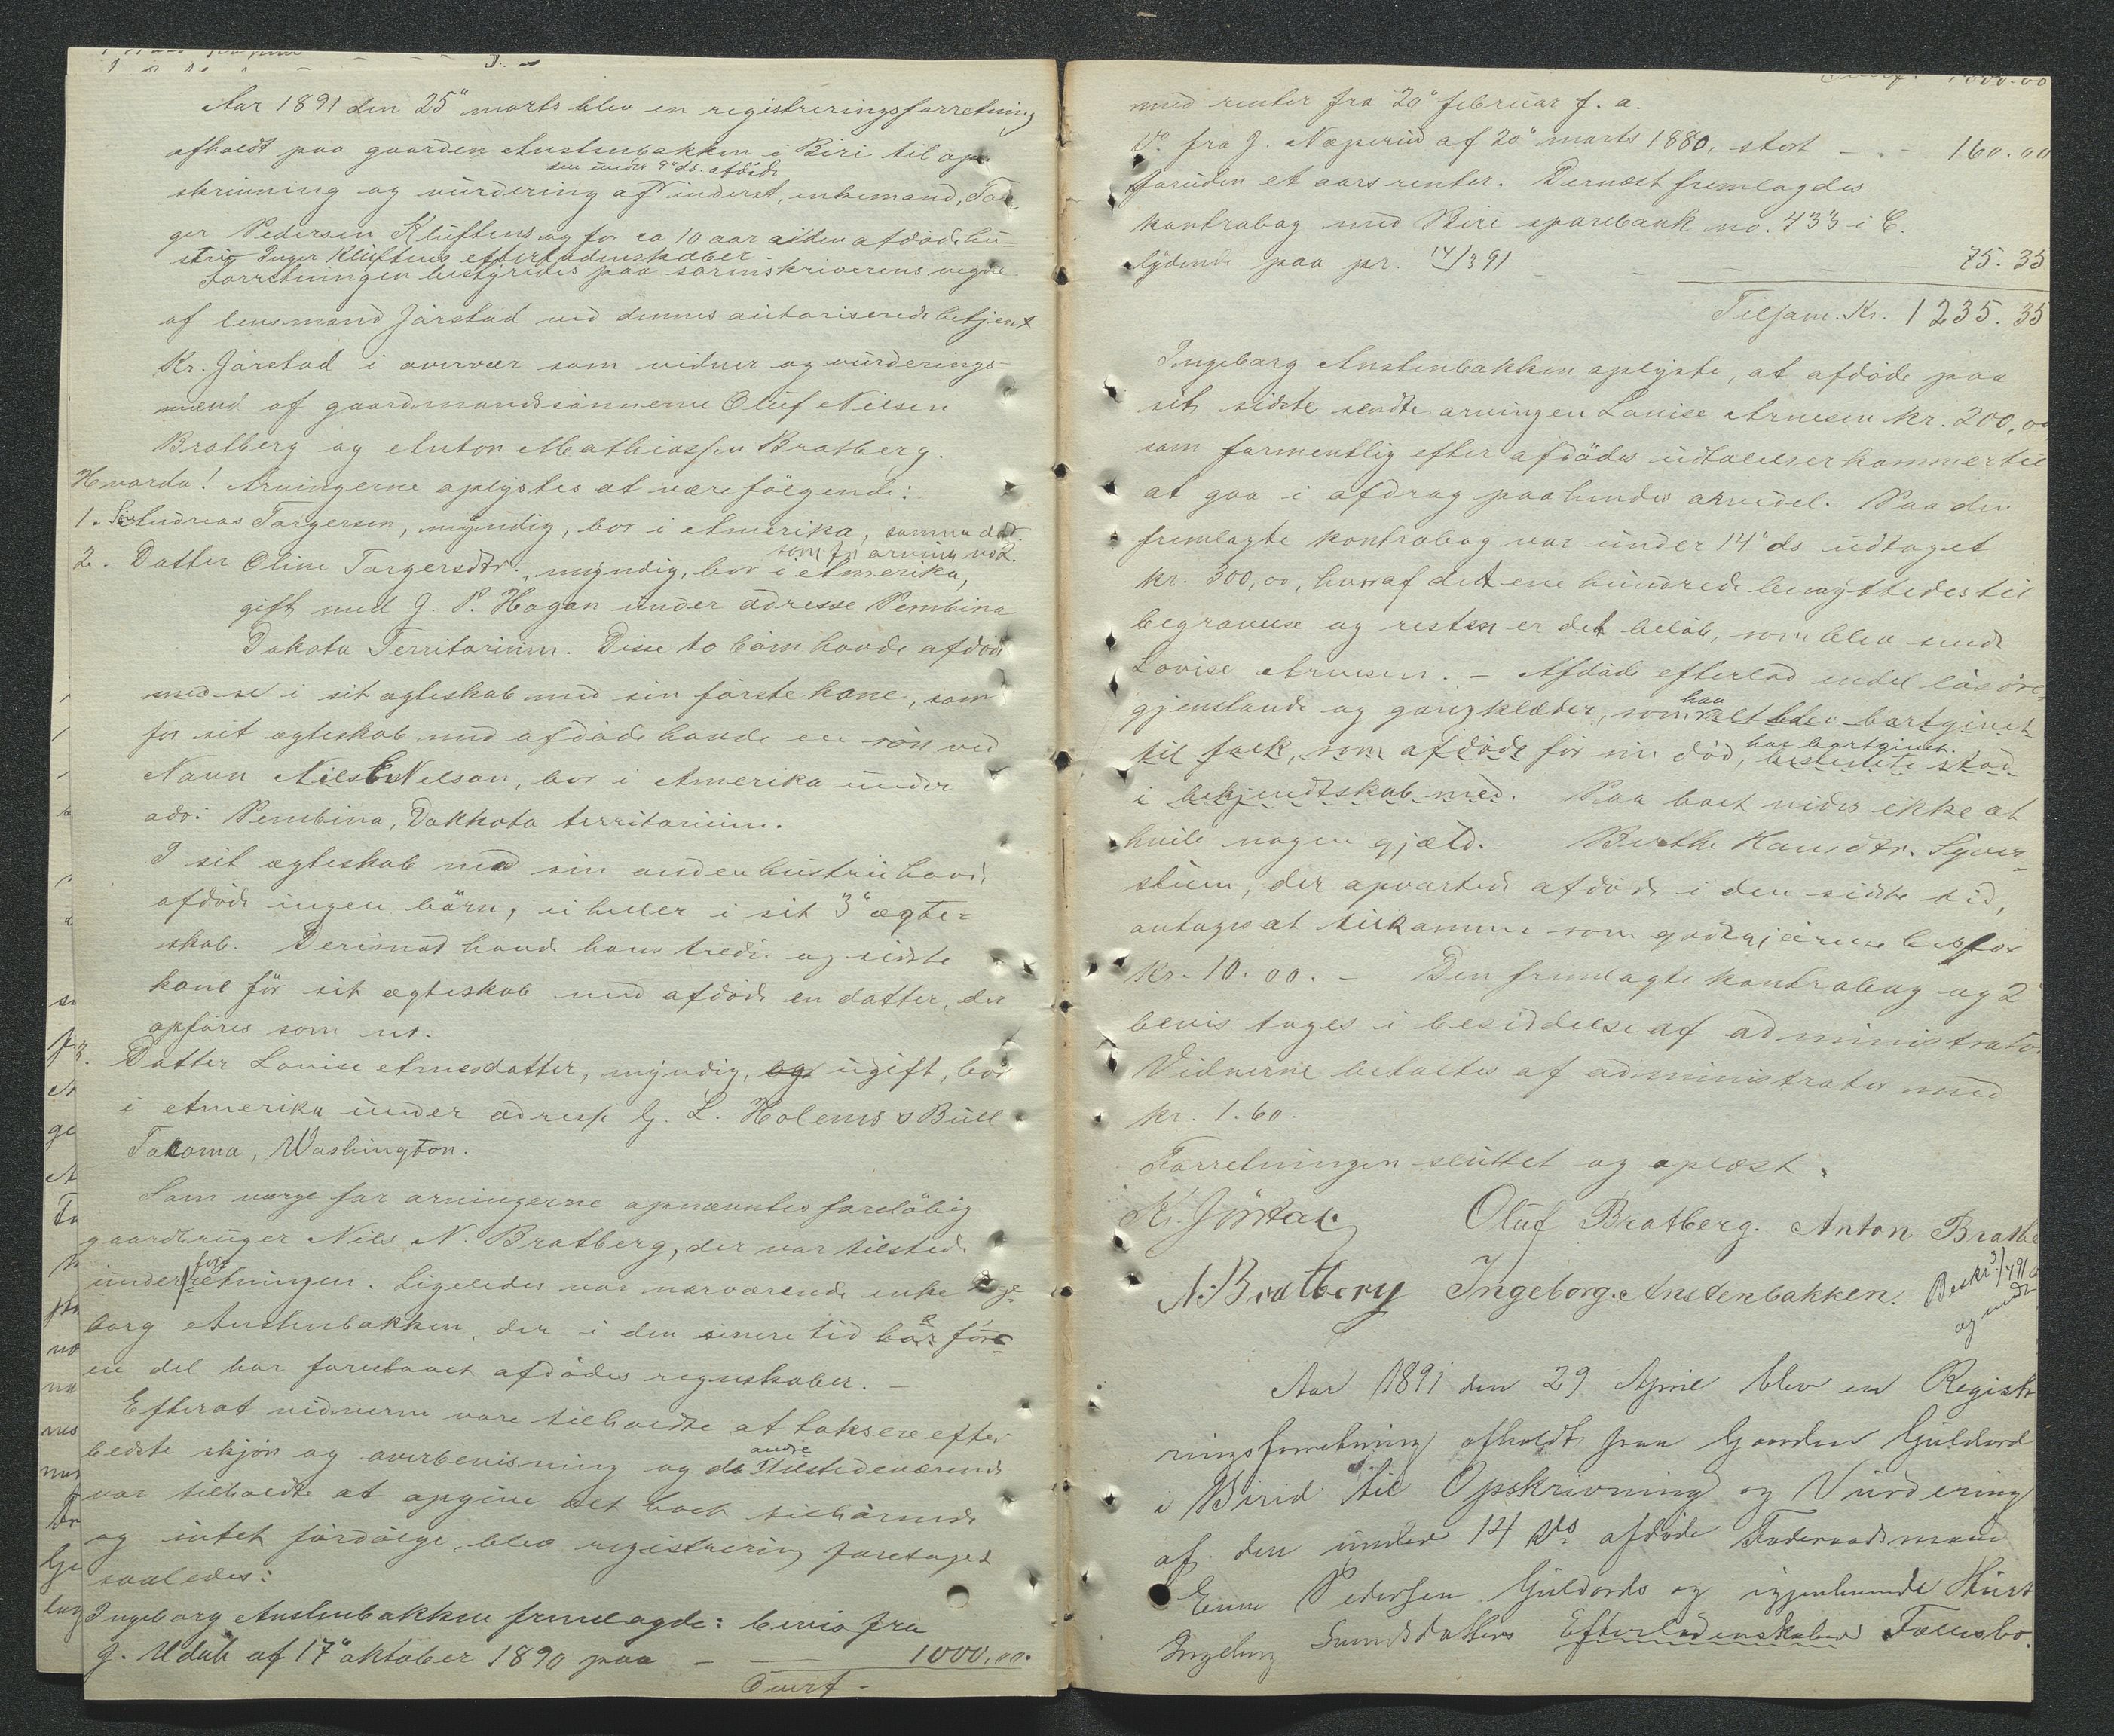 Aar 1891 den 25" marts blev en registreringsforretning
afholdt paa gaarden Anstenbakken i Biri til op-
den under 9" ds. afdøde
skrivning og vurdering af inderst, enkemand, Tor-
ger Pedersen Kluftens og for ca 10 aar siden afdøde hu-
stru Inger Kluftens efterladenskaber.
Forretningen bestyredes paa sorenskriverens vegne
af lensmand Jørstad ved dennes autoriserede betjent
Kr. Jørstad i overvær som vidner og vurderings-
mænd af gaardmandssønnerne Oluf Nilsen
Bratberg og Anton Mathiassen Bratberg.
Hvorda! Arvingerne oplystes at være følgende:
1. Søn Andreas Torgersen, myndig, bor i Amerika, samme adr.
som for arving no 2.
2. Datter Oline Torgersdtr., myndig, bor i Amerika,
gift med J. P. Hogan under adresse Pembina
Dakota Territorium. Disse to børn havde afdøde
med se i sit ægteskab med sin første kone, som
før sit ægteskab med afdøde havde en søn ved
Navn Nils E Nelson, bor i Amerika under
adr: Pembina, Dakkota territorium.
I sit ægteskab med sin anden hustru havde
afdøde ingen børn, ei heller i sit 3" ægte-
skab. Derimod havde hans tredie og sidste
kone før sit ægteskab med afdøde en datter, der
opføres som no.
3. Datter Lovise Arnesdatter, myndig, og ugift, bor
i Amerika under adress G. L. Holems & Bull
Tacoma, Washington.
Som værge for arvingerne opnævntes foreløbig
gaardbruger Nils N. Bratberg, der var tilstede
for
under retningen. Ligeledes var nærværende enke Inge-
borg Anstenbakken, der i den senere tid har før
en del har forestaaet afdødes regnskaber. -
Efterat vidnerne vare tilholdte at taksere efter
bedste skjøn og overbevisning og de andre tilstedeværende
var tilholdte at opgive alt boet tilhørende
og intet fordølge, blev registrering foretaget
saaledes:
Ingeborg Anstenbakken fremlagde: bevis fra
J. Udub af 17" oktober 1890 paa - — 1000.00.
Overf. -
Overf. 1000.00
med renter fra 20" februar f. a.
Do. fra J. Næperud af 20" marts 1880, stort - . - 160.00
foruden et aars renter. Dernæst fremlagdes
kontrabog med Biri sparebank no. 433 i C.
lydende paa pr. 14/3 91 - - - - - 75.35
Tilsam. Kr. 1235.35
Ingeborg Anstenbakken oplyste, at afdøde paa
sit sidste sendte arvingen Lovise Arnesen kr. 200,00
som formentlig efter afdødes udtalelser kommer til
at gaa i afdrag paa hendes arvedel. Paa den
fremlagte kontrabog var under 14" ds udtaget
kr. 300,00, hvoraf det ene hundrede benyttedes til
begravelse og resten er det beløb, som blev sendt
Lovise Arnesen. - Afdøde efterlod endel løsøre-
gjenstande og gangklæder, som han alt blev bortgivet
til folk, som afdøde før sin død, har bortgivet. bestemte stod
i bekjendtskab med. Paa boet vides ikke at
hvile nogen gjæld. Berthe Hansdtr. Syver-
stuen, der opvartede afdøde i den sidste tid,
antages at tilkomme som godtgjørelse herfor
kr. 10.00. - Den fremlagte kontrabog og 2
bevis toges i besiddelse af administrator
Vidnerne betaltes af administrator med
kr. 1.60.
Forretningen sluttet og oplæst.
Kr. Jørstad Oluf Bratberg. Anton Bratbe
N. Bratberg Ingeborg Anstenbakken. Beskr. 3/4 91
og sendt
Aar 1891 den 29 April blev en Registr
ringsforretning afholdt paa Gaarden Guldord
i Birid til Opskrivning og Vurdering
af den under 14 ds. afdøde Føderaadsmand
Even Pedersen Guldords og igjenlevende Hust
Ingeborg Efterladenskaber Fællesbo.